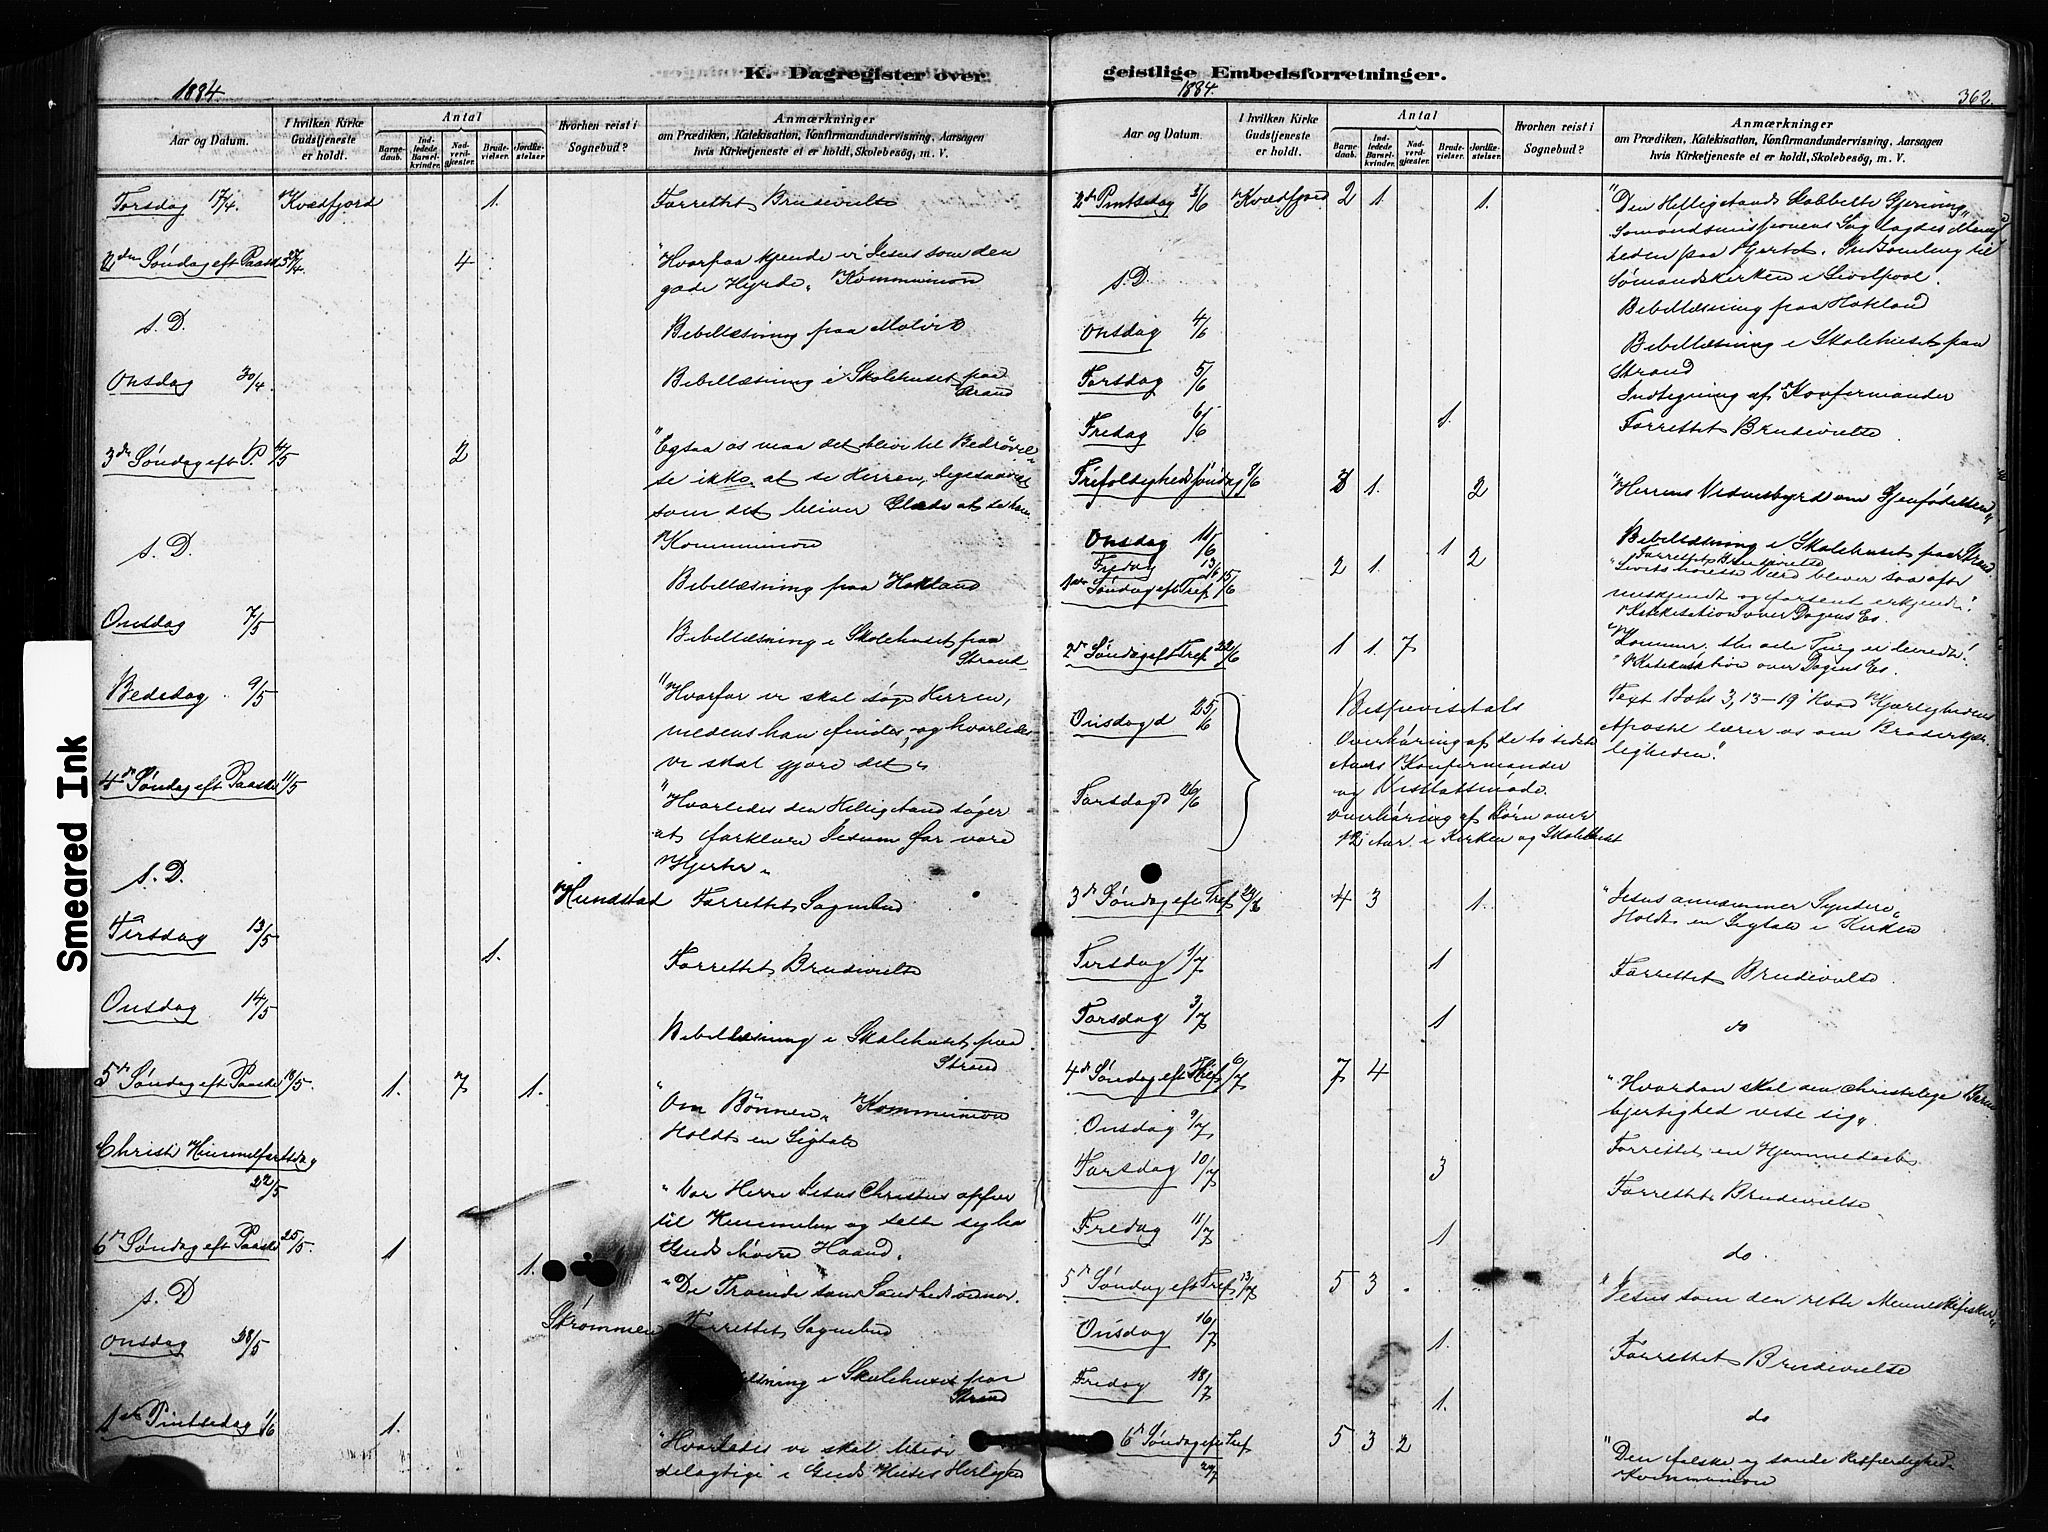 K. Dagregister over
1884.
Aar og Datum.
I hvilken Kirke Gudstjeneste er holdt.
Antal
Barne-daab.
Ind-ledede Barsel-kvinder.
Nad-verd-gjæster.
Brude-vielser.
Jordfæ-stelser
Hvorhen reist i Sognebud?
Anmærkninger
om Prædiken, Katekisation, Konfirmandundervisning, Aarsagen
hvis Kirketjeneste ei er holdt, Skolebesög, m. V.
Torsdag 17/4. Kvædfjord 1. Forrettet Brudevielse
2den Søndag eft Paaske 27/4. 4 "Hvorpaa kjende vi Jesus som den
gode Hyrde" Kommunion
s. D. Bibellæsning paa
Onsdag 30/4. Bibellæsning i Skolehuset paa
Strand
3die Søndag eft P. 4/5 2 "Ogsaa os maa det blive til Bedrøvel-
se ikke at se Herren, ligesaavist
som det bliver Glæde at se ham
Kommunion
s. D. Bibellæsning paa Hokland
Onsdag 7/5 Bibellæsning i Skolehuset paa
Strand
Bededag 9/5 "Hvorfor vi skal søge Herren,
medens han findes, og hvorledes
vi skal gjøre det"
4de Søndag eft Paaske 11/5 "Hvorledes den Helligaand søger
at forklare Jesum for vore
Hjerter"
s. D. Hundstad Forrettet Sognebud
Tirsdag 13/5 1. Forrettet Brudevielse
Onsdag 14/5 Bibellæsning i Skolehuset paa
Strand
5te Søndag eft Paaske 18/5. 1. 7 1. "Om Bønnen" Kommunion
Holdt en Ligtale
Christi Himmelfartsdag
22/5 "Vor Herre Jesus Christus opfør
til Himmelen og sette sig hos
Guds høire Haand"
6te Søndag eft Paaske 25/5. 1 1. "De Troende som Sandhedsvidner.
s. D Strømmen Forrettet Sognebud
Onsdag 28/5 i Skolehuset paa
Strand
1ste Pintsedag 1/6 1. "Hvorledes vi skal blive
delagtige i Guds Huses Herlighed
geistlige Embedsforretninger.
1884. 362.
Aar og Datum.
I hvilken Kirke Gudstjeneste er holdt.
Antal
Barne-daab.
Ind-ledede Barsel-kvinder.
Nad-verd-gjæster.
Brude-vielser.
Jordfæ-stelser.
Hvorhen reist i Sognebud?
Anmærkninger
om Prædiken, Katekisation, Konfirmandundervisning, Aarsagen
hvis Kirketjeneste ei er holdt, Skolebesög, m. V.
2den Pintsdag 2/6 Kvædfjord 2 1. 1. "Den Helligaands dobbelte Gjerning"
Sømandsmissionens Sag lagdes Menig
heden paa Hjertet. Indsamling til
Sømandskirken i Liverpool.
s. D. Bibellæsning paa Hokland
Onsdag 4/6 Bibellæsning i Skolehuset paa
Strand
Torsdag 5/6 Indtegning af Konfirmander
Fredag 6/6 1. Forrettet Brudevielse
Trefoldighedssøndag 8/6 3 1. 2 "Herrens Vidnesbyrd om Gjenfødelsen"
Onsdag 11/6 Bibellæsning i Skolehuset paa Strand.
Fredag 13/6 1 Forrettet Brudevielse
1ste Søndag eft Tref 15/6 2 1. 2 "Livets høieste Værd bliver saa ofte
miskjendt og forsent erkjendt"
Katekisation over Dagens Ev.
2de Søndag eft Tref 22/6 1 1. 7 "Kommer, thi alle Ting er beredt"!
Katekisation over Dagens Ev.
Onsdag d 25/6
Torsdag d 26/6
Bispevisitats
Overhøring af de to sidste
Aars Konfirmander
og Visitatsmøde.
Overhøring af Børn over
12 Aar i Kirken og Skolehuset
Text 1 Joh 3, 13-19 Hvad Kjærlighedens
Apostel lærer os om Broderkjær-
ligheden"
3de Søndag eft Tref 29/6 4 3 1. "Jesus annammer Syndere"
Holdt en Ligtale i Kirken
Tirsdag 1/7 1 Forrettet Brudevielse
Torsdag 3/7 1 do
4de Søndag eft Tref 6/7 7 4 "Hvordan skal den christelige Barm
hjertighed vise sig"
Onsdag 9/7 Forrettet en Hjemmedaab
Torsdag 10/7 3 Forrettet Brudevielse
Fredag 11/7 1 do.
5te Søndag eft Tref 13/7 5 3 "Jesus som den rette Menneskefisker"
Onsdag 16/7 1. Forrettet Brudevielse
Fredag 18/7 1. do
6te Søndag eft Tref
20/7 5 3 2 "Den falske og sande Retfærdighed"
Kommunion
Smeared Ink